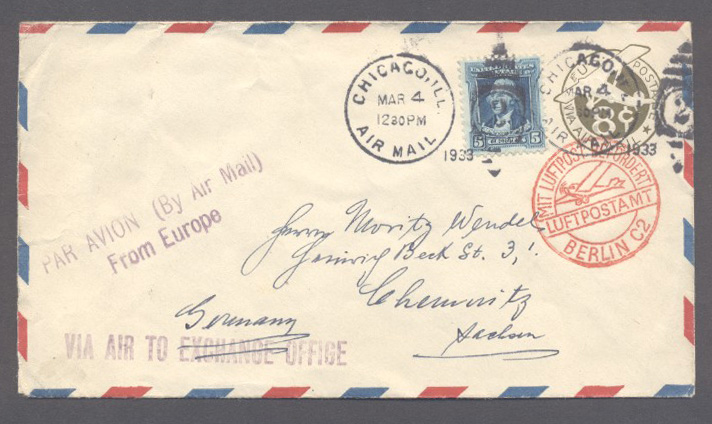 CHICAGO, ILL.
MAR 4
1230 PM
AIR MAIL
1933
UNITED STATES
5 5
CHICAGO,
4
AIR
1933
POSTAGE
VIA AIR
8c
2
MIT LUFTPOST BEFÖRDERT
LUFTPOSTAMT
BERLIN C2
PAR AVION (By Air Mail)
From Europe
Herrn Moritz Wendel
Heinrich Beck St. 3,
Chemnitz
Germany Sachsen
VIA AIR TO EXCHANGE OFFICE